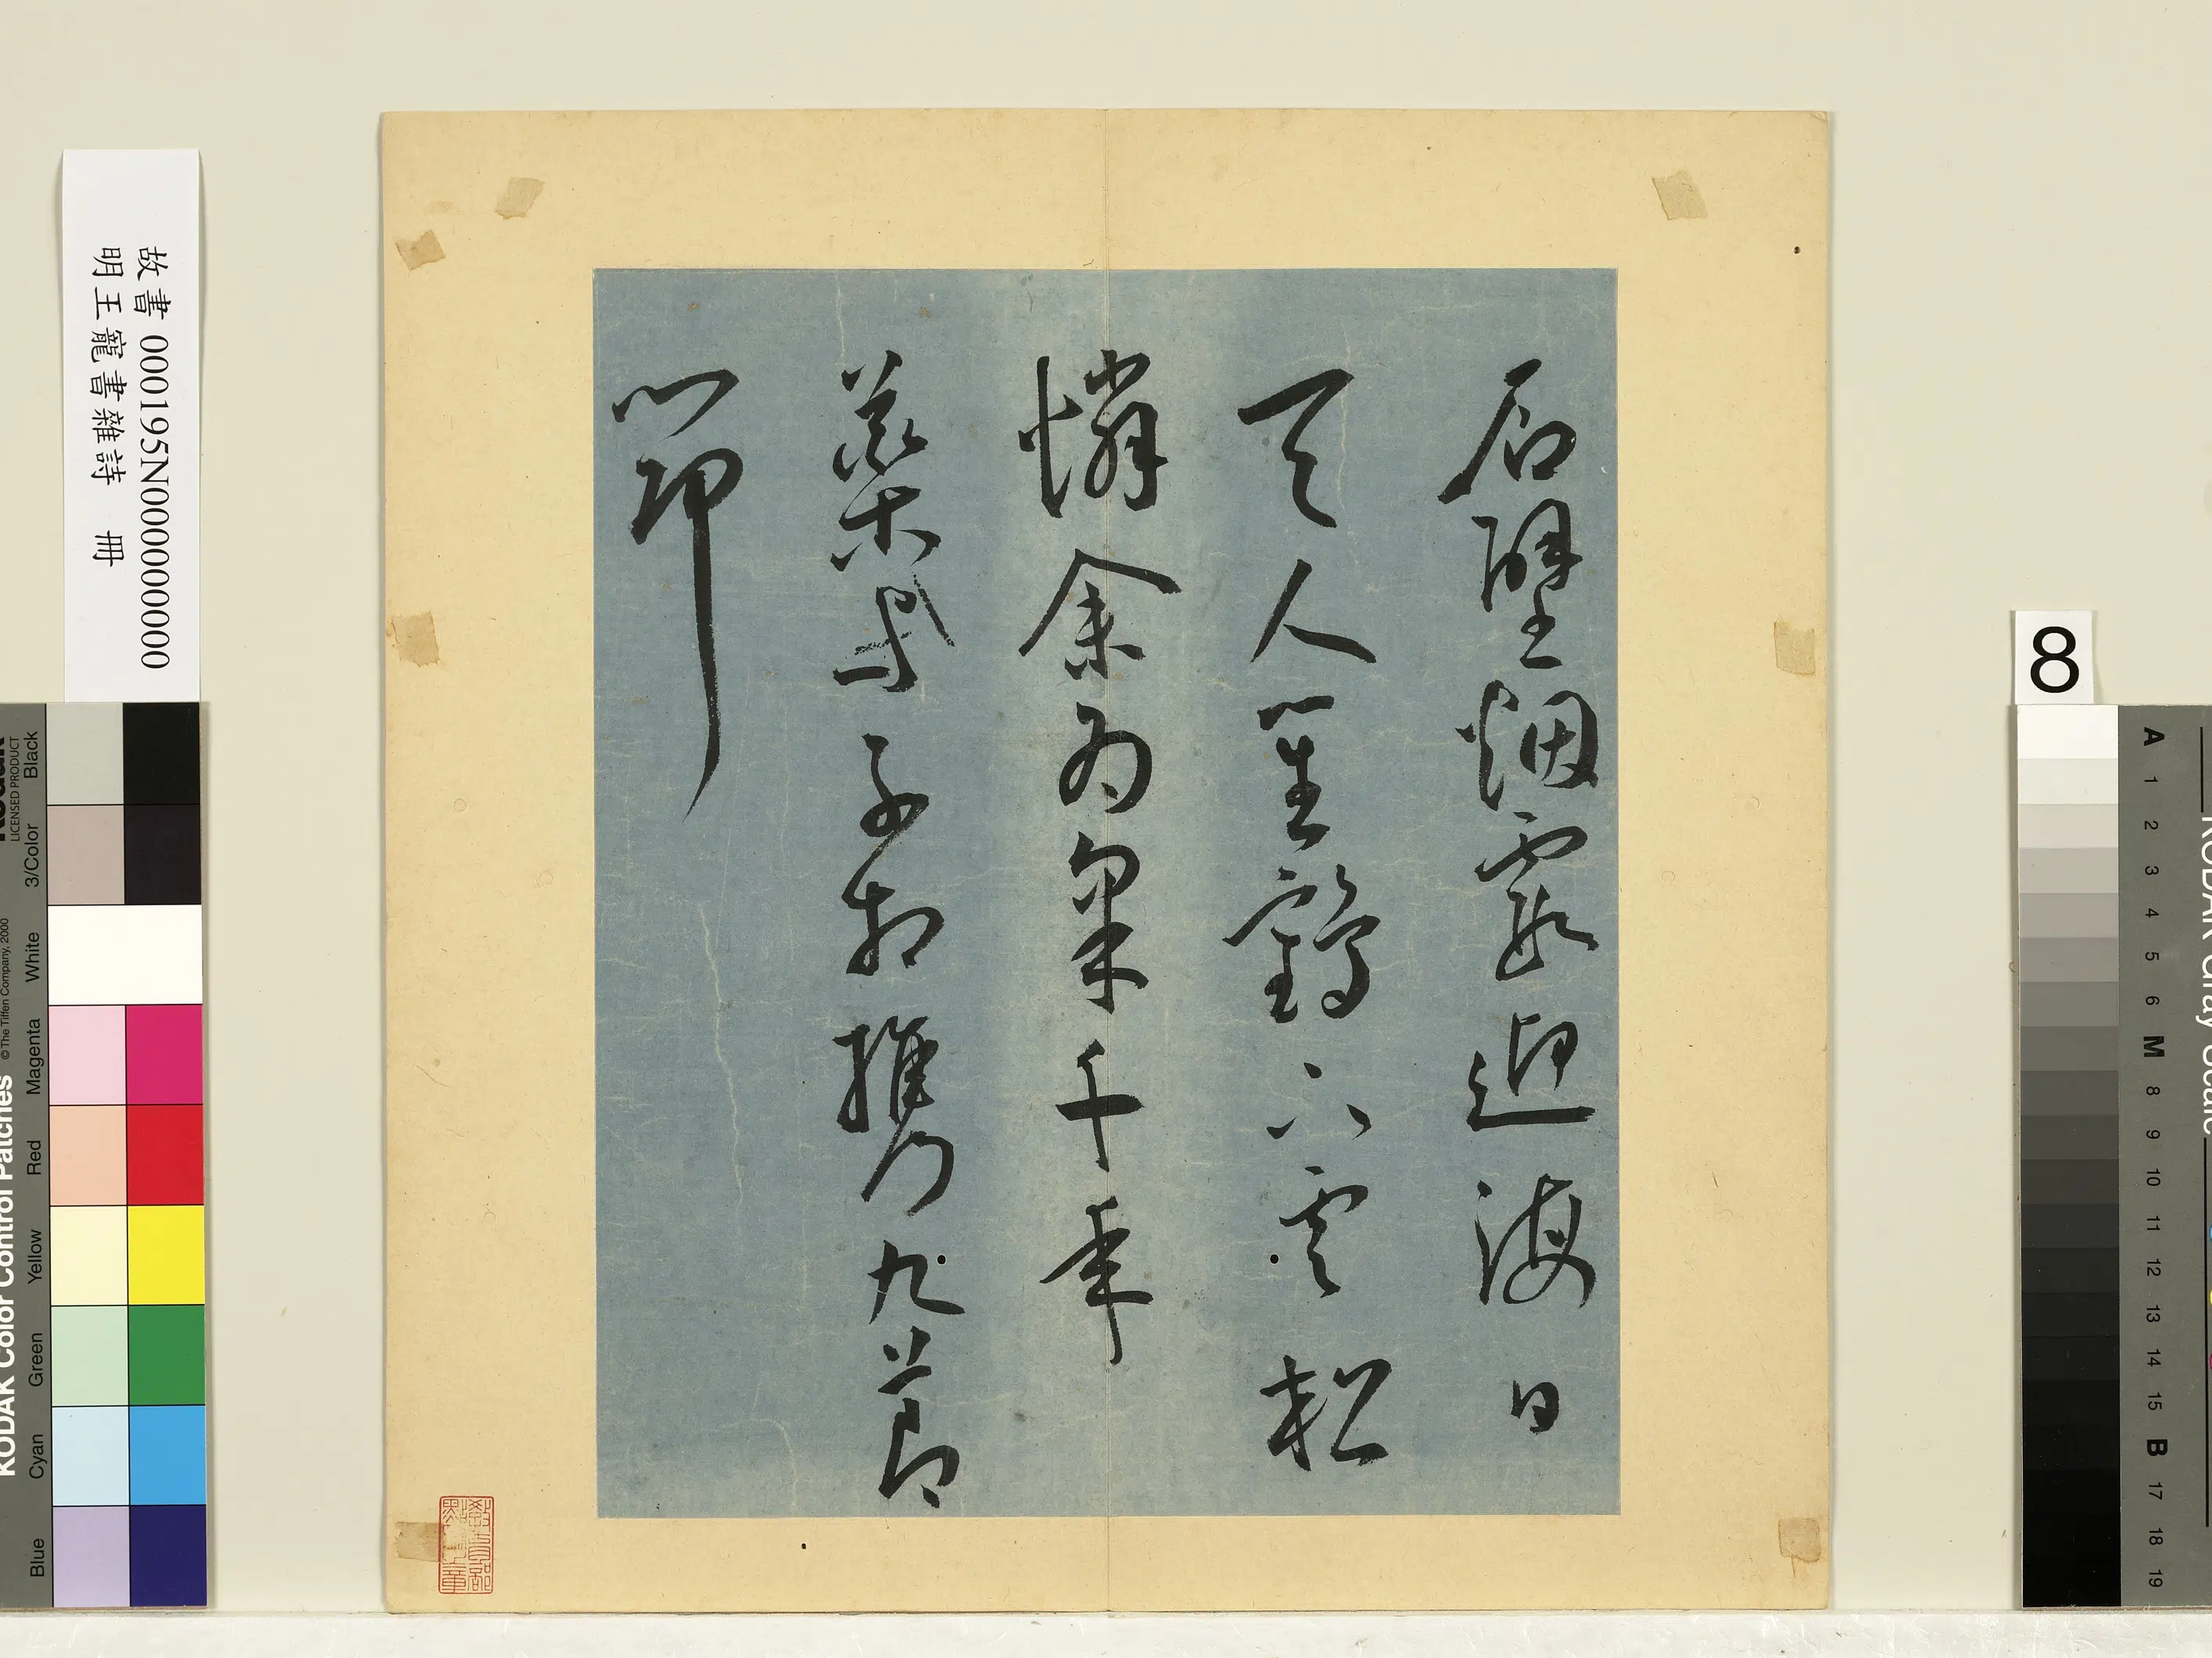 石壁烟霞迎海日
天人笙鶴下雲松
憐余為采千年
藥與子相攜九節
筇
故書 000195N000000000
明王寵書雜詩 冊
8
KODAK Color Control Patches
© The Tiffen Company, 2000
LICENSED PRODUCT
Blue Cyan Green Yellow Red Magenta White 3/Color Black
KODAK Gray Scale
A 1 2 3 4 5 6 M 8 9 10 11 12 13 14 15 B 17 18 19